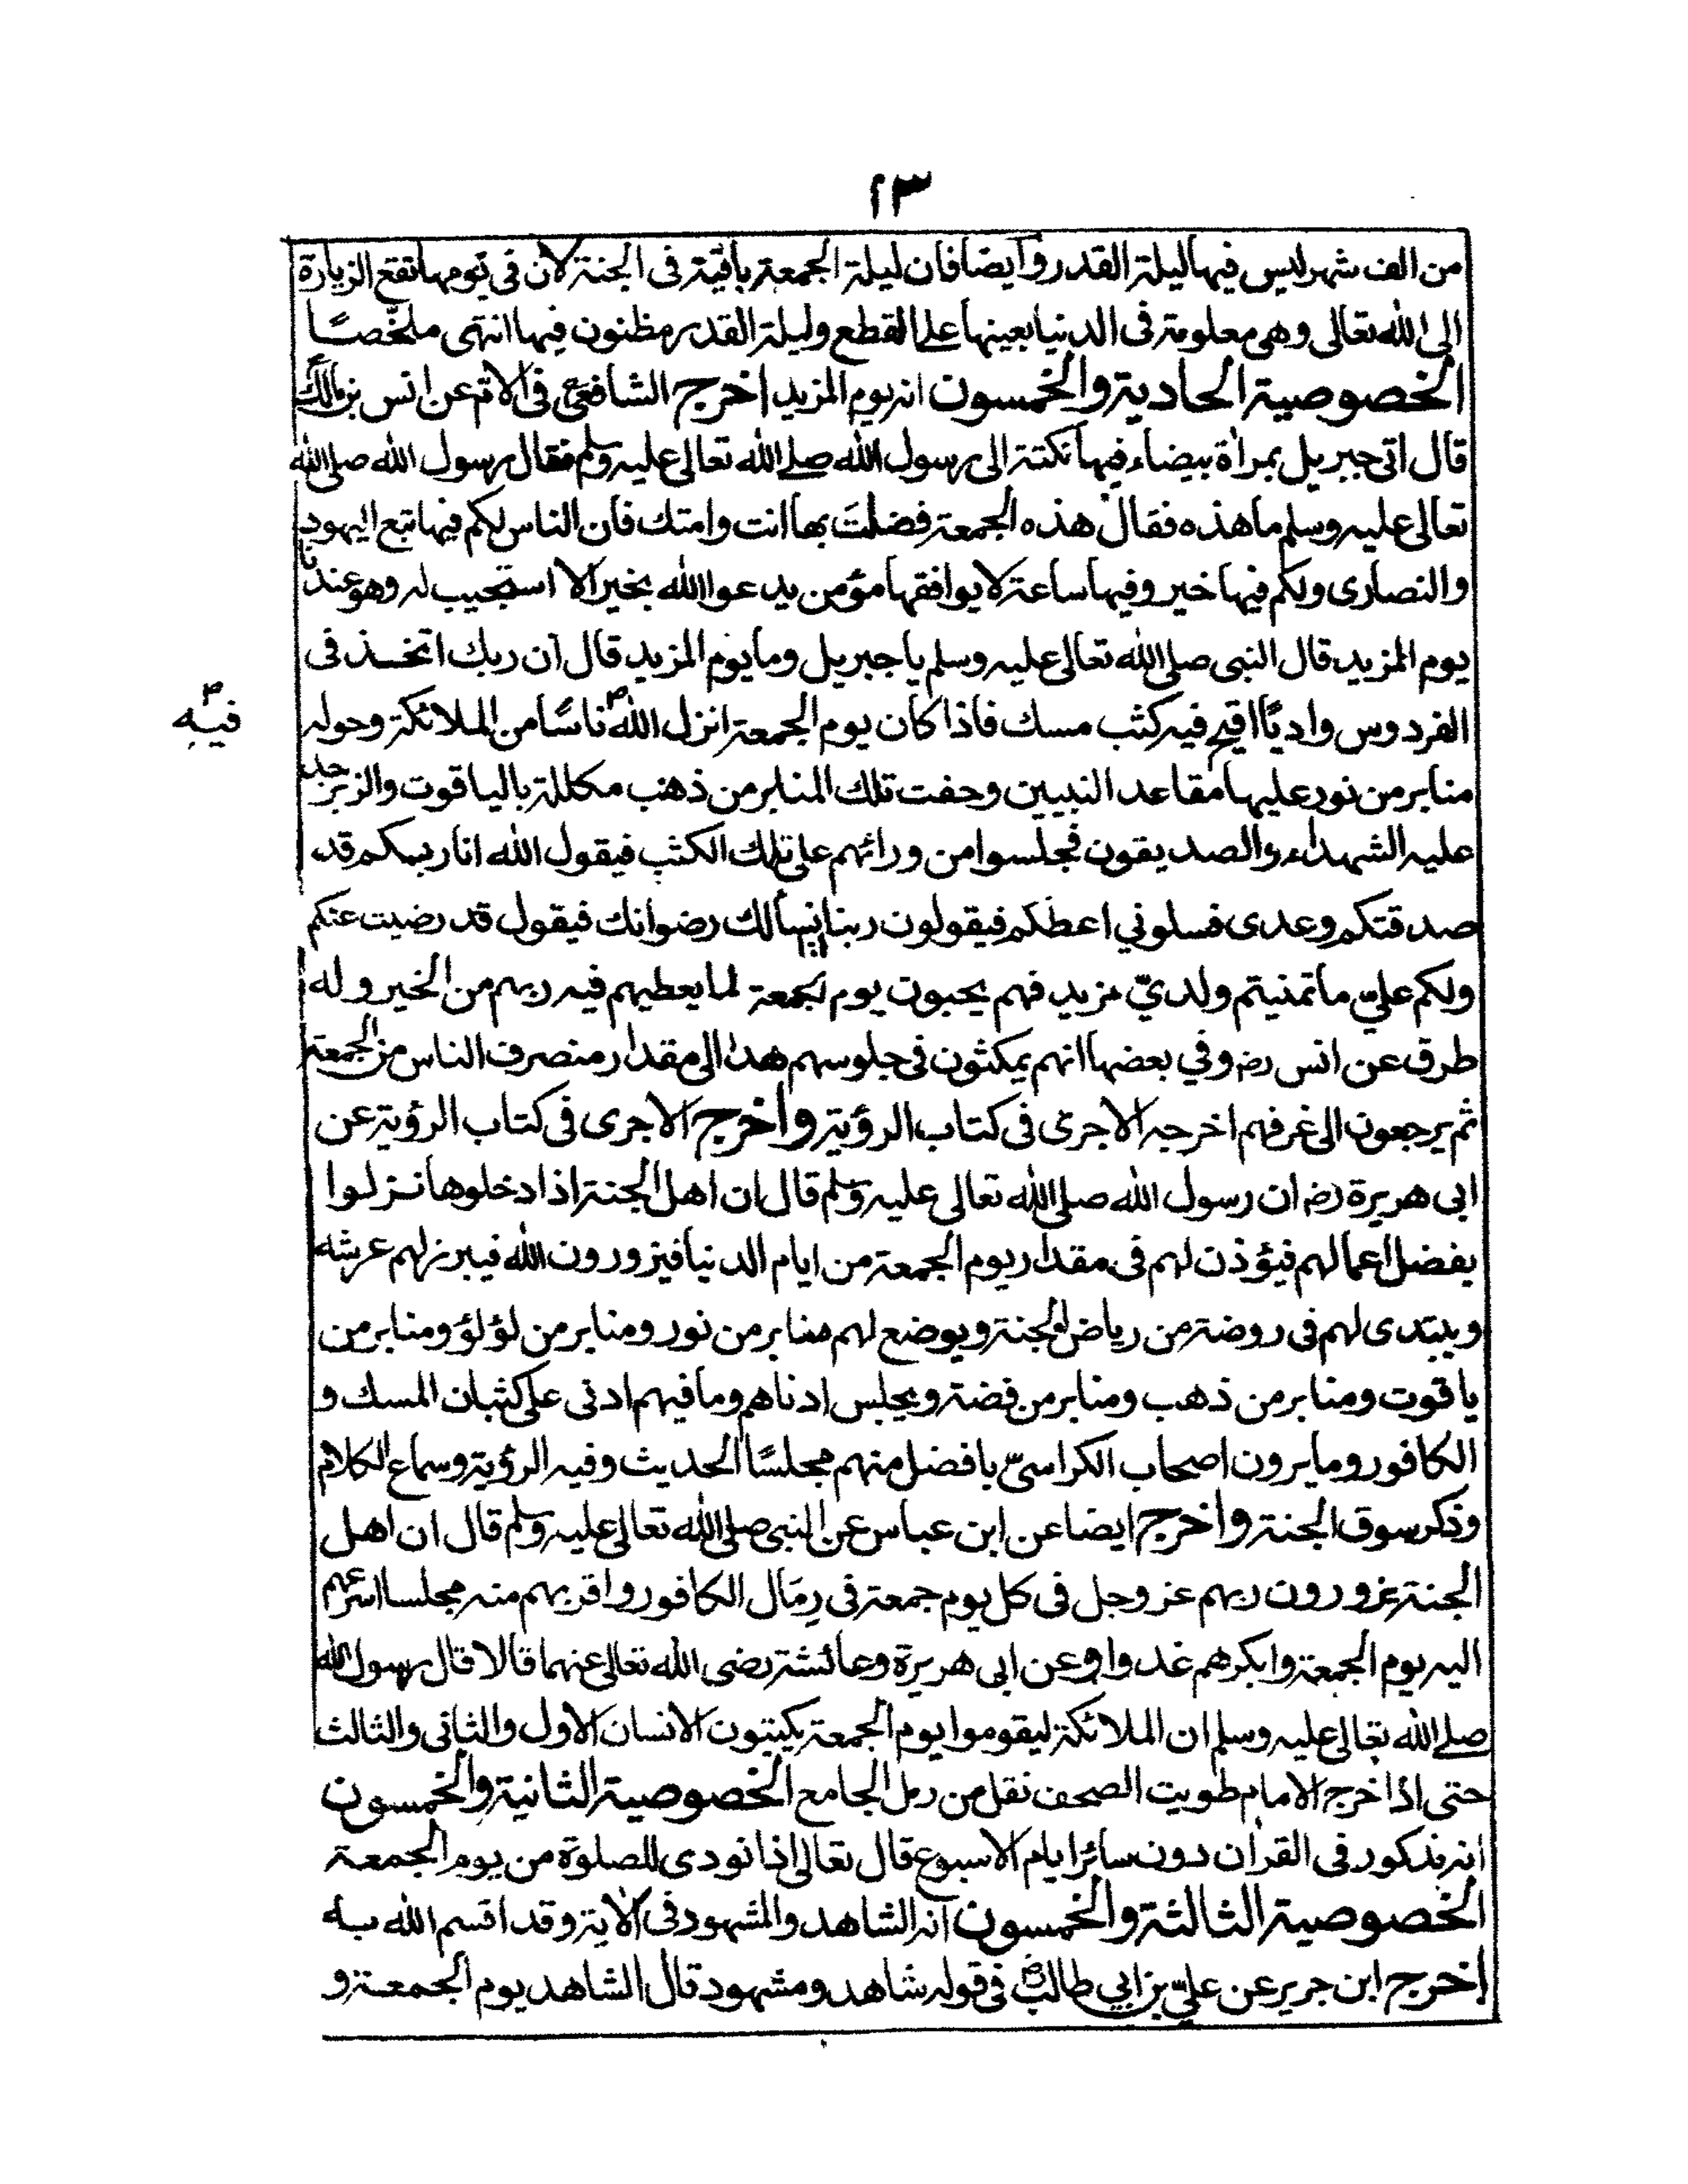 ١٣
من الف شهر ليس فيها ليلة القدر وايضا فان ليلة الجمعة باقية فى الجنة لان فى يومها تقع الزيارة
الى الله تعالى وهى معلومة فى الدنيا بعينها على القطع وليلة القدر مظنون فيها انتهى ملخصًا
الخصوصية الحادية والخمسون انه يوم المزيد اخرج الشافعى فى الام عن انس بن مالك
قال اتى جبريل بمراة بيضاء فيها نكتة الى رسول الله صلى الله تعالى عليه وسلم فقال رسول الله صلى الله
تعالى عليه وسلم ما هذه فقال هذه الجمعة فضلتَ بها انت وامتك فان الناس لكم فيها تبع اليهود
والنصارى ولكم فيها خير وفيها ساعة لا يوافقها مؤمن يدعوا الله بخير الا استجيب له وهو عندنا
يوم المزيد قال النبى صلى الله تعالى عليه وسلم يا جبريل وما يوم المزيد قال ان ربك اتخذ فى
الفردوس واديًا افيح فيه كثب مسك فاذا كان يوم الجمعة انزل الله ناسًا من الملائكة وحوله
فيه
منابر من نور عليها مقاعد النبيين وحفت تلك المنابر من ذهب مكللة بالياقوت والزبرجد
عليه الشهداء والصديقون فجلسوا من ورائهم على تلك الكثب فيقول الله انا ربكم قد
صدقتكم وعدى فسلونى اعطكم فيقولون ربنا نسألك رضوانك فيقول قد رضيت عنكم
ولكم علىّ ما تمنيتم ولدىّ مزيد فهم يحبون يوم الجمعة لما يعطيهم فيه ربهم من الخير وله
طرق عن انس رض وفى بعضها انهم يمكثون فى جلوسهم هذا الى مقدار منصرف الناس من الجمعة
ثم يرجعون الى غرفهم اخرجه الاجرى فى كتاب الرؤية واخرج الاجرى فى كتاب الرؤية عن
ابى هريرة رض ان رسول الله صلى الله تعالى عليه وسلم قال ان اهل الجنة اذا دخلوها نزلوا
بفضل اعمالهم فيؤذن لهم فى مقدار يوم الجمعة من ايام الدنيا فيزورون الله فيبرز لهم عرشه
ويبتدى لهم فى روضة من رياض الجنة ويوضع لهم منابر من نور ومنابر من لؤلؤ ومنابر من
ياقوت ومنابر من ذهب ومنابر من فضة ويجلس ادناهم وما فيهم ادنى على كثبان المسك و
الكافور وما يرون اصحاب الكراسىّ بافضل منهم مجلسًا الحديث وفيه الرؤية وسماع الكلام
وذكر سوق الجنة واخرج ايضا عن ابن عباس عن النبى صلى الله تعالى عليه وسلم قال ان اهل
الجنة يزورون ربهم عز وجل فى كل يوم جمعة فى رمال الكافور واقربهم منه مجلسا اسرعهم
اليه يوم الجمعة وابكرهم غدوا وعن ابى هريرة وعائشة رضى الله تعالى عنهما قالا قال رسول الله
صلى الله تعالى عليه وسلم ان الملائكة ليقوموا يوم الجمعة يكتبون الانسان الاول والثانى والثالث
حتى اذا خرج الامام طويت الصحف نقل من رمل الجامع الخصوصية الثانية والخمسون
انه مذكور فى القرآن دون سائر ايام الاسبوع قال تعالى اذا نودى للصلوة من يوم الجمعة
الخصوصية الثالثة والخمسون انه الشاهد والمشهود فى الاية وقد اقسم الله به
اخرج ابن جرير عن علىّ بن ابى طالب رض فى قوله شاهد ومشهود قال الشاهد يوم الجمعة و